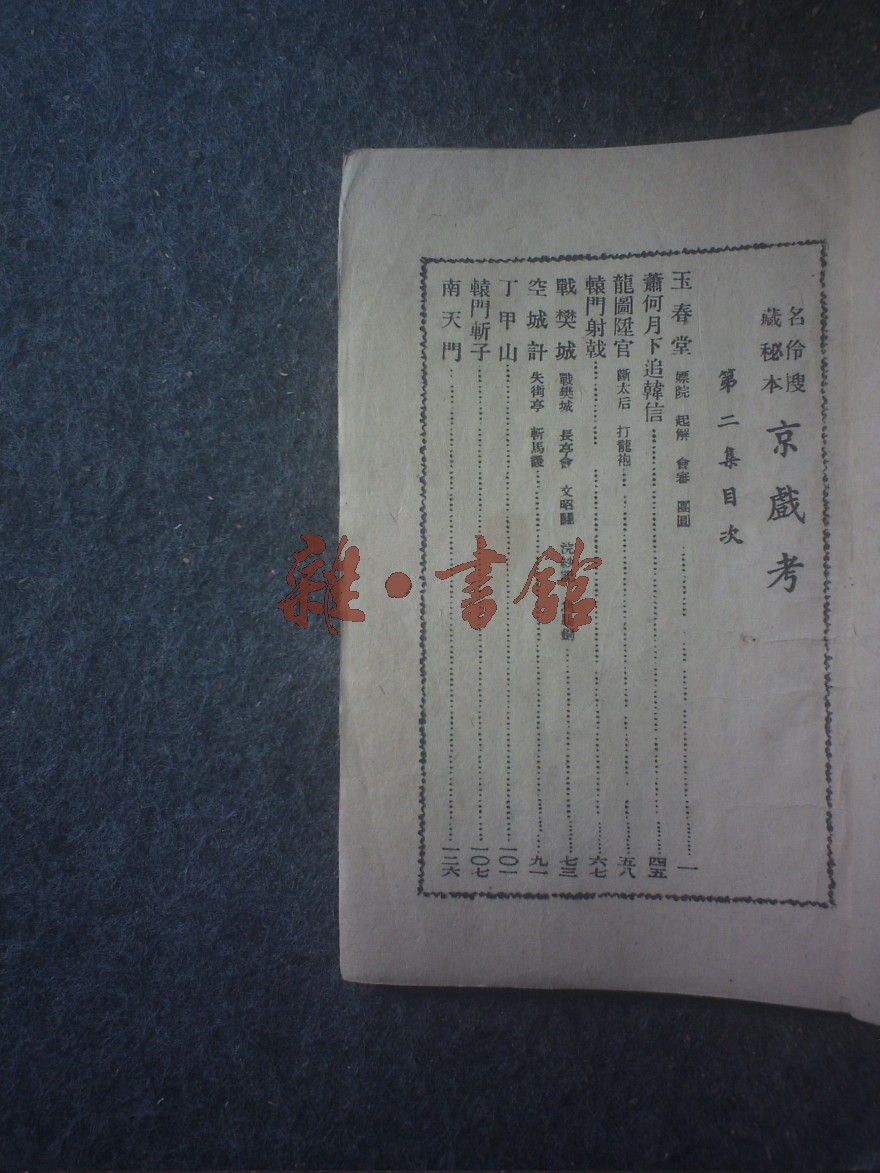 名伶搜
藏秘本
京戲考
第二集目次
玉春堂 嫖院 起解 會審 團圓 一
蕭何月下追韓信 四五
龍圖陞官 斷太后 打龍袍 五八
轅門射戟 六七
戰樊城 戰樊城 長亭會 文昭關 浣紗 七三
空城計 失街亭 斬馬謖 九一
丁甲山 一〇一
轅門斬子 一〇七
南天門 一二六
雜·書館